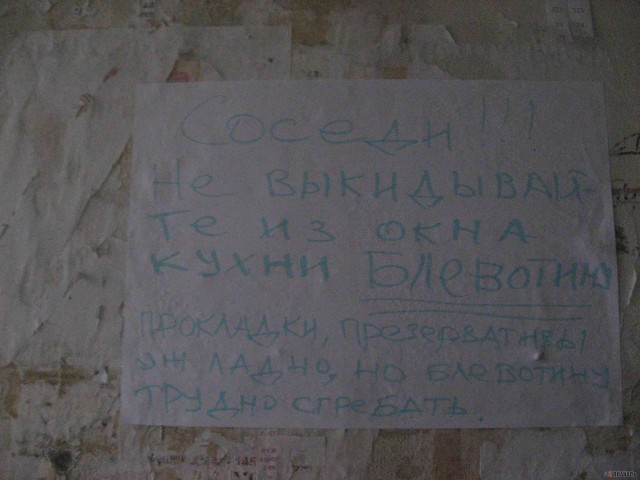 Соседи!!!
Не выкидывай-
те из окна
кухни Блевотину
прокладки, презервативы
уж ладно, но блевотину
трудно сгребать.